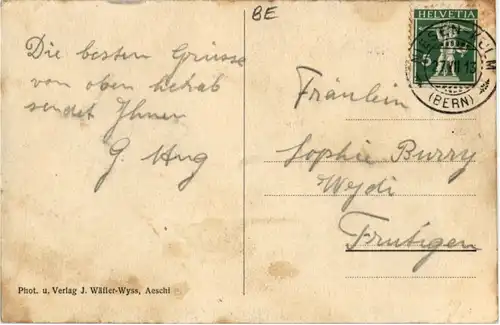 Die besten Grüsse
von oben herab
sendet Ihnen
G. Hug
BE
HELVETIA
5
NIESEN-KULM
27.VII.13
(BERN)
Fräulein
Sophie Burry
Weydi
Frutigen
Phot. u. Verlag J. Wäfler-Wyss, Aeschi